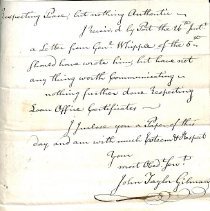 respecting Peace, but nothing Authentic —
I received by Post the 26th Inst.
a Letter from Genl. Whipple of the 6th
should have wrote him, but have not
any thing worth Communicating —
nothing further done respecting
Loan Office Certificates —
I inclose you a Paper of this
day, and am with much Esteem & Respect
Your
most Obd. Servt.
John Taylor Gilman